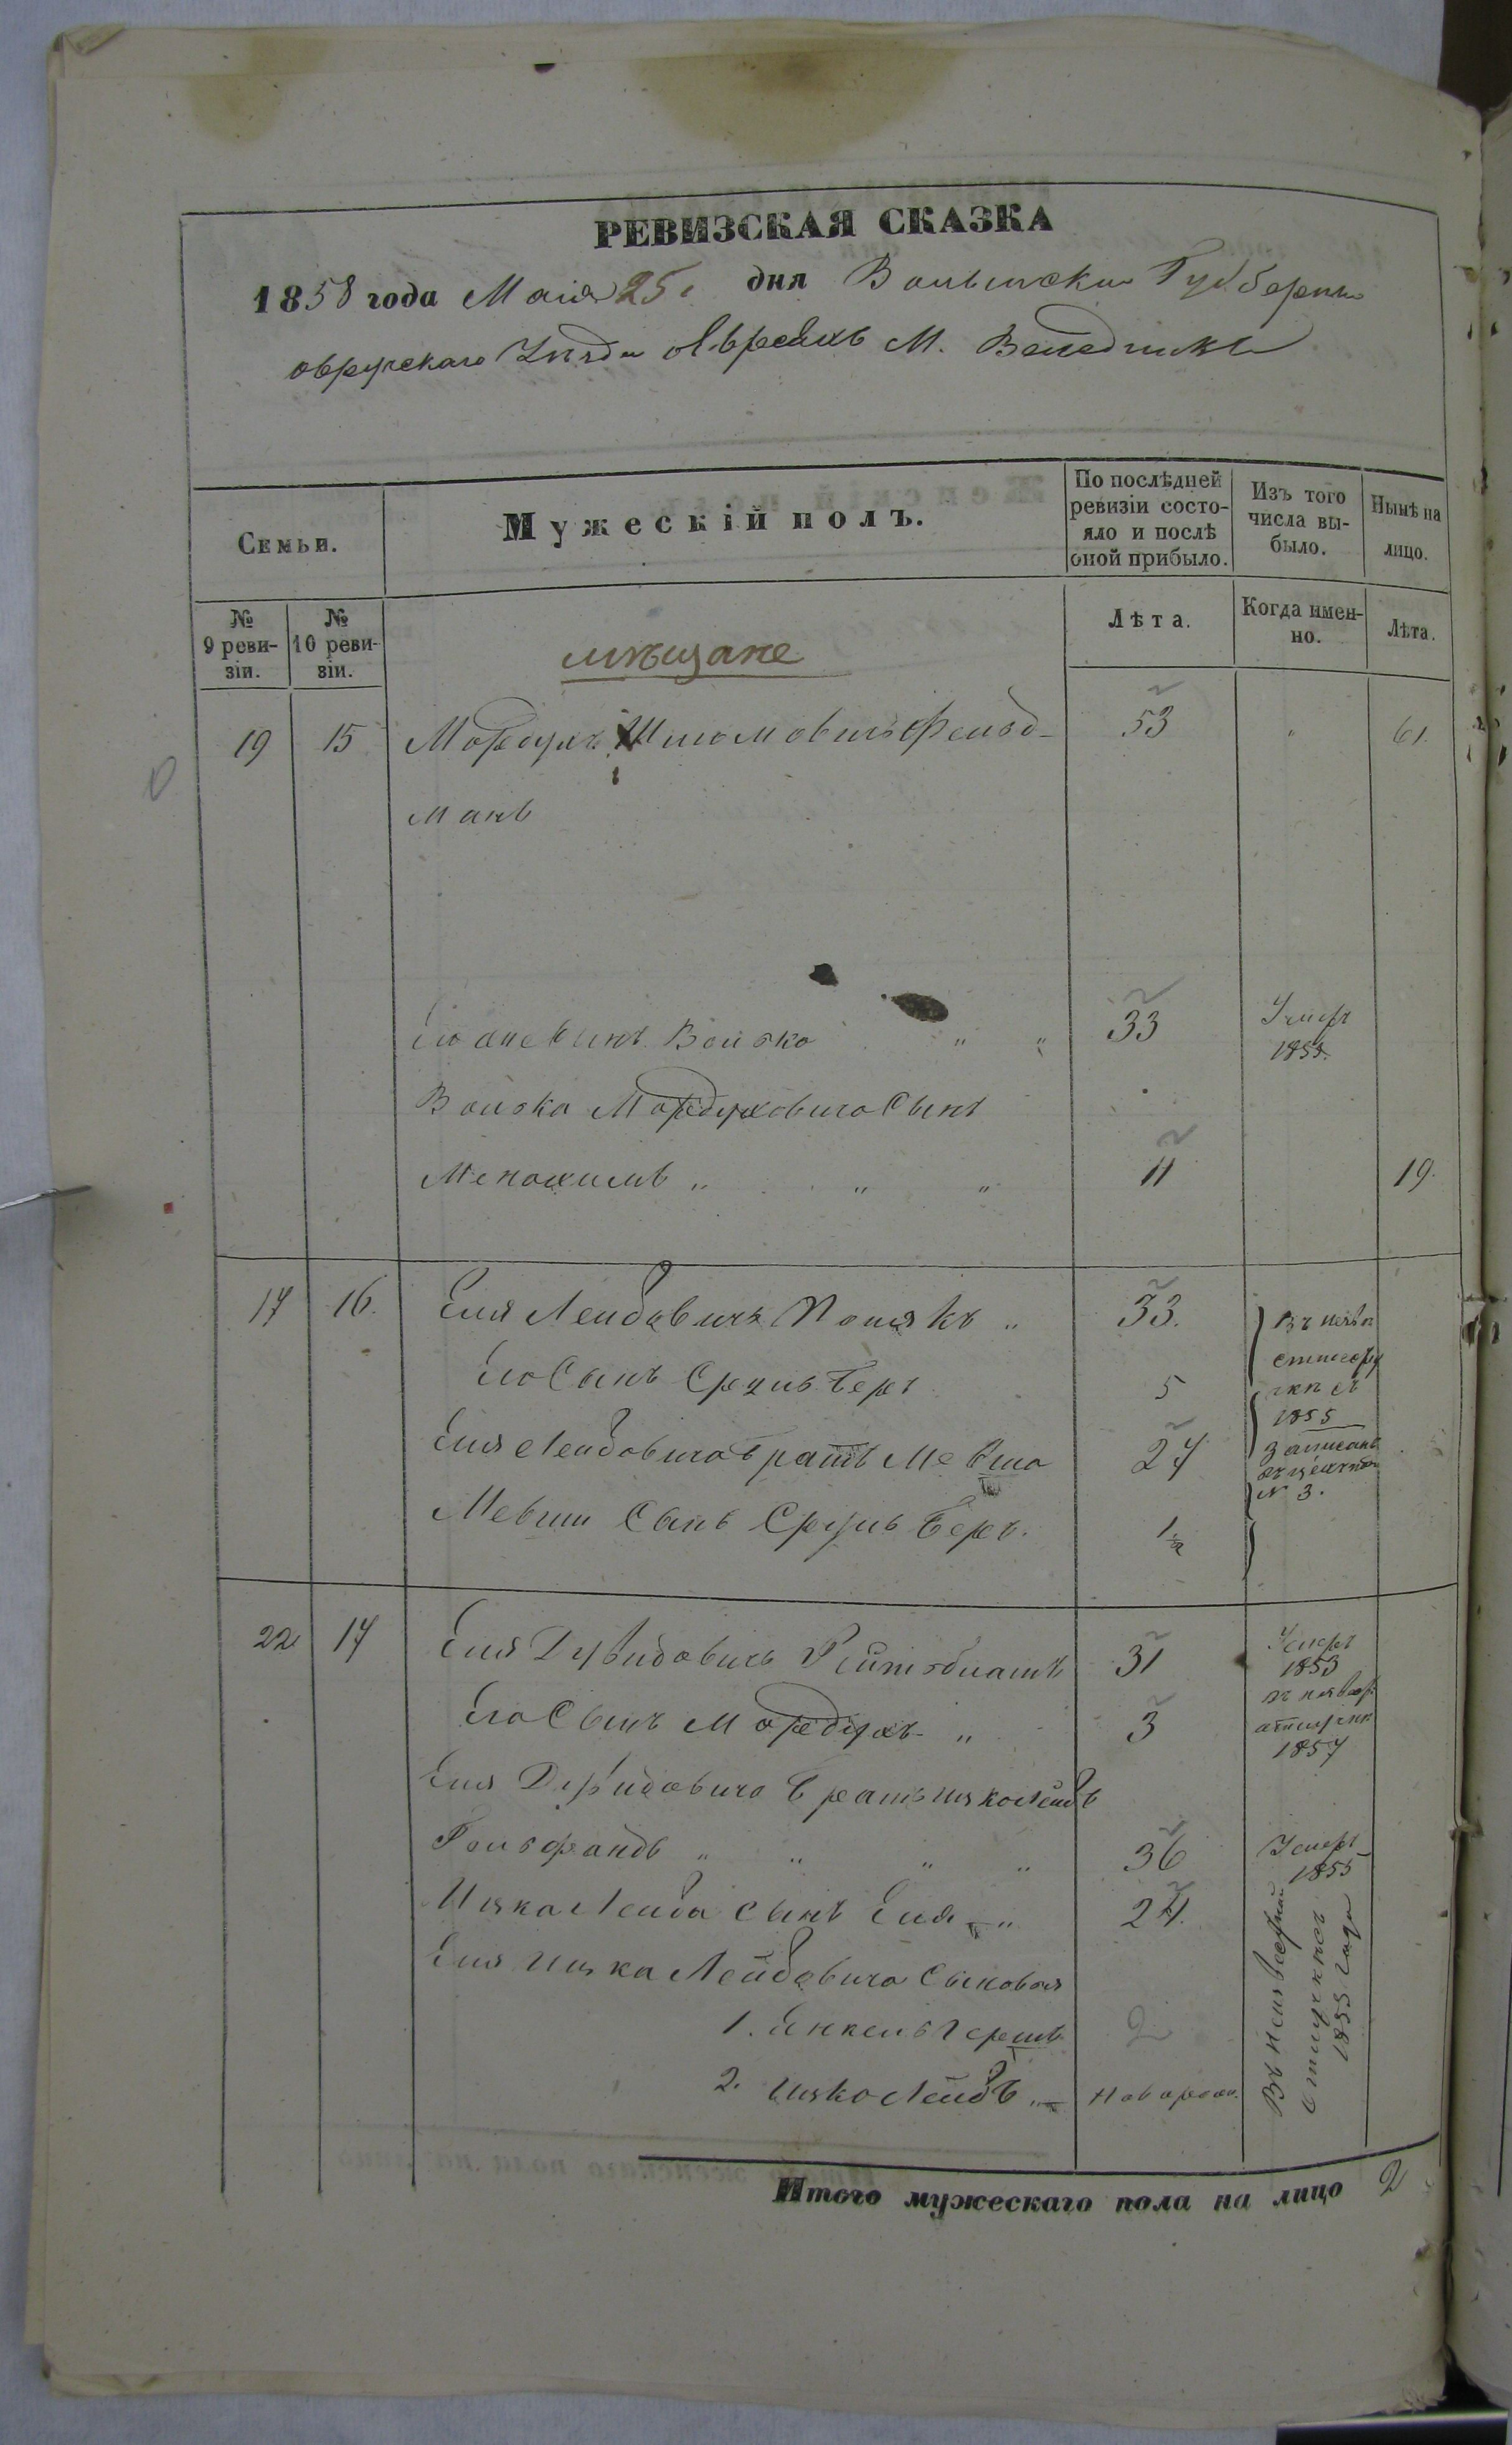 РЕВИЗСКАЯ СКАЗКА
1858 года Маія 25 дня Волынской Губерніи
овручскаго Уѣзда Евреяхъ М. Веледникъ
Семьи.
Мужескій полъ.
По послѣдней ревизіи состояло и послѣ оной прибыло.
Изъ того числа выбыло.
Нынѣ на лицо.
№ 9 ревизіи.
№ 10 ревизіи.
Лѣта.
Когда именно.
Лѣта.
мѣщане
19 15 Мордухъ Шломовичъ Фельд- 53 " 61.
манъ
Его сынъ Волько " " 33 Умеръ 1853.
Волька Мордуховича Сынъ
Менахимъ " " " 11 19.
17 16. Еля Лейбовичъ Полякъ " 33. Въ неизв
Его Сынъ Срулъ Беръ 5 отлучкѣ съ 1855
Еля Лейбовича братъ Мевша 27 записанъ
№ 3.
Мевши Сынъ Срулъ Беръ. 1/2
22 17 Еля Дувидовичъ 31 Умеръ 1853
Его Сынъ Мордухъ " 3 въ неизвѣс. отлучкѣ 1857
Еля Дувидовича братъ Ицко Лейбъ
Гольфандъ " " " " 36 Умеръ 1855
Ицка Лейба сынъ Еля " 24.
Еля Ицка Лейбовича Сыновья
1. Янкель Гершъ 2
2. Ицко Лейбъ " новорожд.
Въ неизвѣстной отлучкѣ съ 1855 года
Итого мужескаго пола на лицо 2